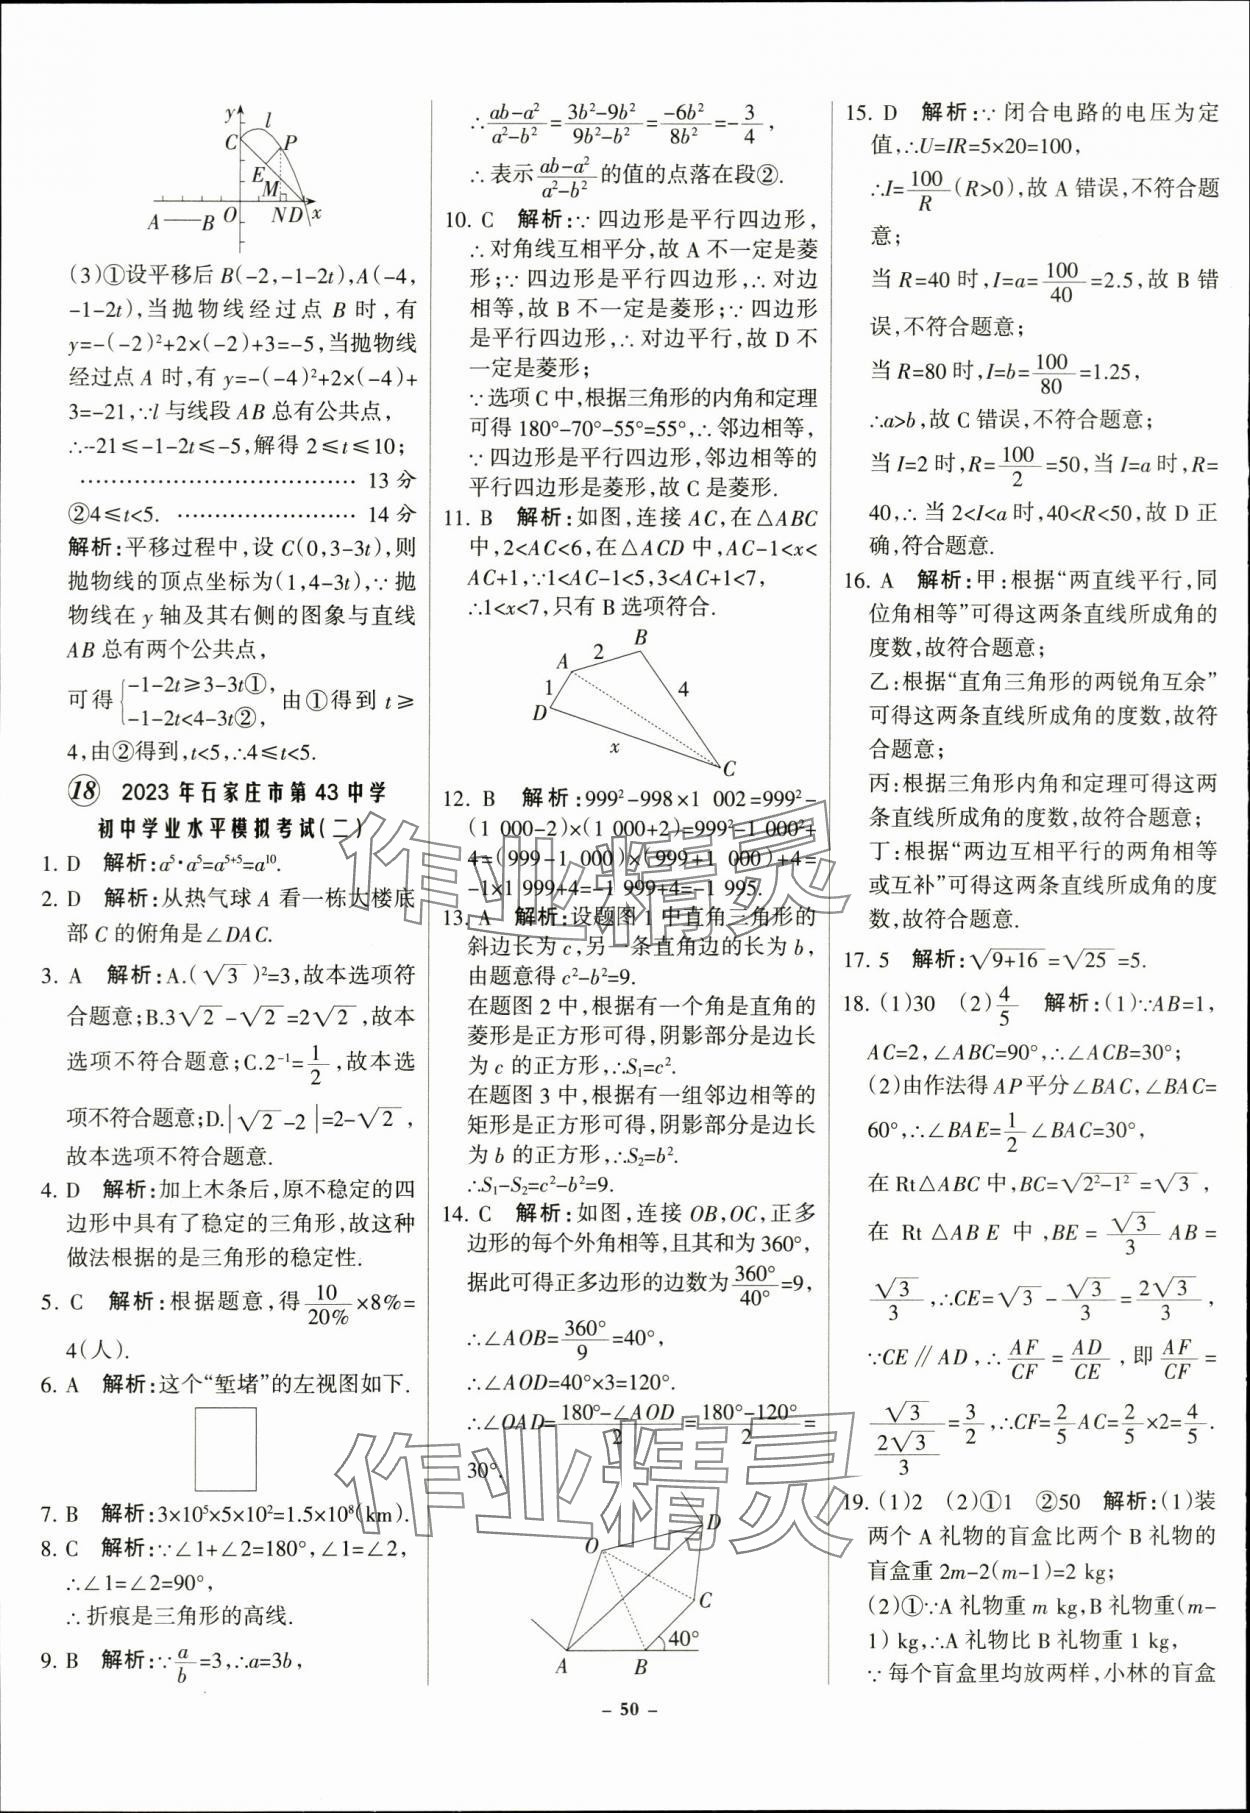 y
l
C
P
E
M
A
B
O
N D
x
(3)①设平移后 B(-2,-1-2t),A(-4,
-1-2t),当抛物线经过点 B 时,有
y=-(-2)²+2×(-2)+3=-5,当抛物线
经过点 A 时,有 y=-(-4)²+2×(-4)+
3=-21,∵l 与线段 AB 总有公共点,
∴-21≤-1-2t≤-5,解得 2≤t≤10;
………………………………… 13 分
②4≤t<5. …………………… 14 分
解析:平移过程中,设 C(0,3-3t),则
抛物线的顶点坐标为(1,4-3t),∵抛
物线在 y 轴及其右侧的图象与直线
AB 总有两个公共点,
可得{-1-2t≥3-3t①, -1-2t<4-3t②, 由①得到 t≥
4,由②得到,t<5,∴4≤t<5.
18 2023 年石家庄市第 43 中学
初中学业水平模拟考试(二)
1. D 解析:a⁵·a⁵=a⁵⁺⁵=a¹⁰.
2. D 解析:从热气球 A 看一栋大楼底
部 C 的俯角是∠DAC.
3. A 解析:A.(√3)²=3,故本选项符
合题意;B.3√2-√2=2√2,故本
选项不符合题意;C.2⁻¹=1/2,故本选
项不符合题意;D.|√2-2|=2-√2,
故本选项不符合题意.
4. D 解析:加上木条后,原不稳定的四
边形中具有了稳定的三角形,故这种
做法根据的是三角形的稳定性.
5. C 解析:根据题意,得10/20%×8%=
4(人).
6. A 解析:这个“堑堵”的左视图如下.
7. B 解析:3×10⁵×5×10²=1.5×10⁸(km).
8. C 解析:∵∠1+∠2=180°,∠1=∠2,
∴∠1=∠2=90°,
∴折痕是三角形的高线.
9. B 解析:∵a/b=3,∴a=3b,
∴(ab-a²)/(a²-b²)=(3b²-9b²)/(9b²-b²)=-6b²/8b²=-3/4,
∴表示(ab-a²)/(a²-b²)的值的点落在段②.
10. C 解析:∵四边形是平行四边形,
∴对角线互相平分,故 A 不一定是菱
形;∵四边形是平行四边形,∴对边
相等,故 B 不一定是菱形;∵四边形
是平行四边形,∴对边平行,故 D 不
一定是菱形;
∵选项 C 中,根据三角形的内角和定理
可得 180°-70°-55°=55°,∴邻边相等,
∵四边形是平行四边形,邻边相等的
平行四边形是菱形,故 C 是菱形.
11. B 解析:如图,连接 AC,在△ABC
中,2<AC<6,在△ACD 中,AC-1<x<
AC+1,∵1<AC-1<5,3<AC+1<7,
∴1<x<7,只有 B 选项符合.
B
2
A
1
4
D
x
C
12. B 解析:999²-998×1 002=999²-
(1 000-2)×(1 000+2)=999²-1 000²+
4=(999-1 000)×(999+1 000)+4=
-1×1 999+4=-1 999+4=-1 995.
13. A 解析:设题图 1 中直角三角形的
斜边长为 c,另一条直角边的长为 b,
由题意得 c²-b²=9.
在题图 2 中,根据有一个角是直角的
菱形是正方形可得,阴影部分是边长
为 c 的正方形,∴S₁=c².
在题图 3 中,根据有一组邻边相等的
矩形是正方形可得,阴影部分是边长
为 b 的正方形,∴S₂=b².
∴S₁-S₂=c²-b²=9.
14. C 解析:如图,连接 OB,OC,正多
边形的每个外角相等,且其和为 360°,
据此可得正多边形的边数为360°/40°=9,
∴∠AOB=360°/9=40°,
∴∠AOD=40°×3=120°.
∴∠OAD=(180°-∠AOD)/2=(180°-120°)/2=
30°.
D
O
C
40°
A
B
15. D 解析:∵闭合电路的电压为定
值,∴U=IR=5×20=100,
∴I=100/R(R>0),故 A 错误,不符合题
意;
当 R=40 时,I=a=100/40=2.5,故 B 错
误,不符合题意;
当 R=80 时,I=b=100/80=1.25,
∴a>b,故 C 错误,不符合题意;
当 I=2 时,R=100/2=50,当 I=a 时,R=
40,∴当 2<I<a 时,40<R<50,故 D 正
确,符合题意.
16. A 解析:甲:根据“两直线平行,同
位角相等”可得这两条直线所成角的
度数,故符合题意;
乙:根据“直角三角形的两锐角互余”
可得这两条直线所成角的度数,故符
合题意;
丙:根据三角形内角和定理可得这两
条直线所成角的度数,故符合题意;
丁:根据“两边互相平行的两角相等
或互补”可得这两条直线所成角的度
数,故符合题意.
17. 5 解析:√(9+16)=√25=5.
18. (1)30 (2)4/5 解析:(1)∵AB=1,
AC=2,∠ABC=90°,∴∠ACB=30°;
(2)由作法得 AP 平分∠BAC,∠BAC=
60°,∴∠BAE=1/2∠BAC=30°,
在 Rt△ABC 中,BC=√(2²-1²)=√3,
在 Rt△ABE 中,BE=√3/3 AB=
√3/3,∴CE=√3-√3/3=2√3/3,
∵CE∥AD,∴AF/CF=AD/CE,即AF/CF=
(√3/3)/(2√3/3)=3/2,∴CF=2/5AC=2/5×2=4/5.
19. (1)2 (2)①1 ②50 解析:(1)装
两个 A 礼物的盲盒比两个 B 礼物的
盲盒重 2m-2(m-1)=2 kg;
(2)①∵A 礼物重 m kg,B 礼物重(m-
1) kg,∴A 礼物比 B 礼物重 1 kg,
∵每个盲盒里均放两样,小林的盲盒
- 50 -
作业精灵
作业精灵